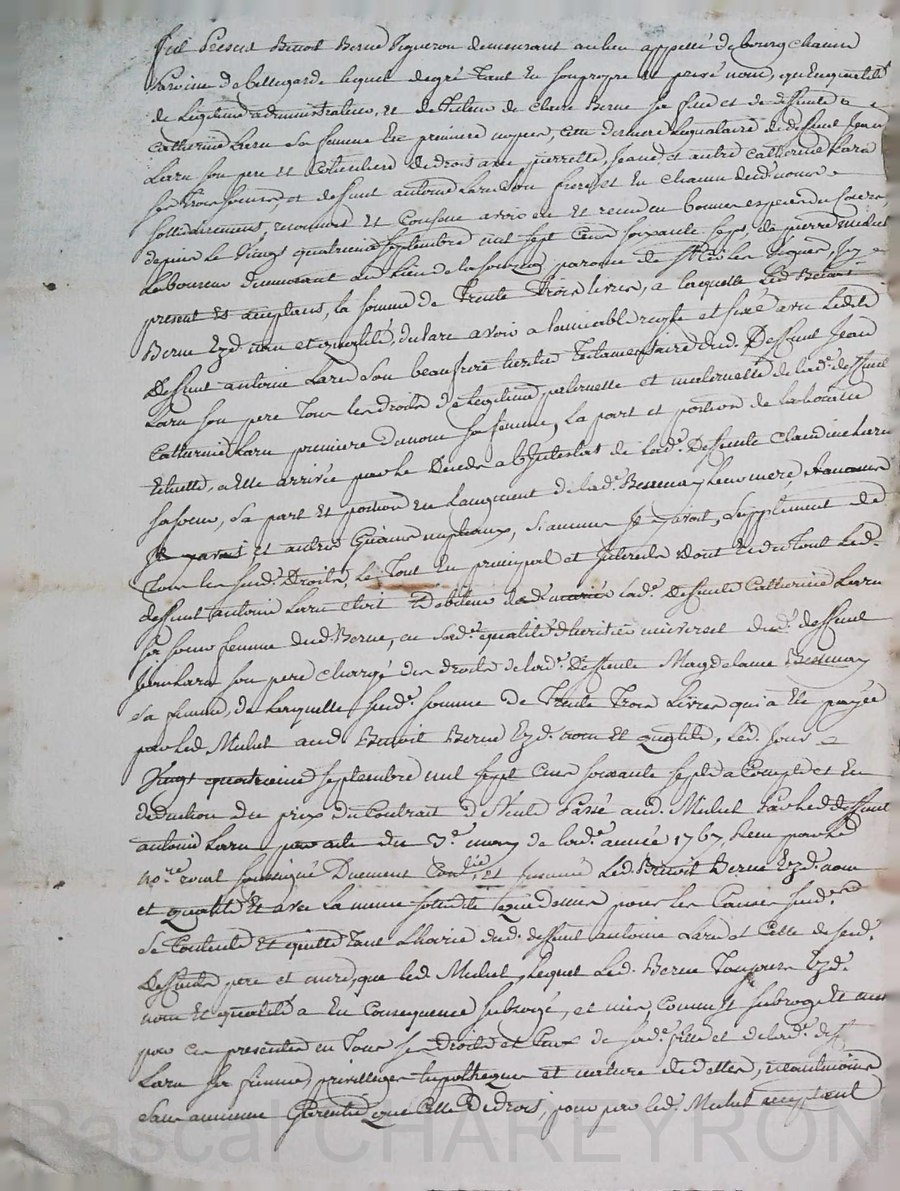 fut Present Benoit Berne Vigneron demeurant au lieu appellé de bourg chanin
Paroisse de bellegarde lequel de gré tant en son propre et privé nom, qu'en qualité
de Legitime administrateur, et de Tuteur de Claire Berne sa fille et de deffunte
Catherine Laru sa femme en premiere nopces, cette derniere Legataire de deffunt Jean
Laru son pere et de droit avec pierrette, Jeanne et autre Catherine Laru
ses Trois soeurs, et deffunt antoine Laru son frere, et En chacun desd. noms
sollidairement, reconnoit Et Confesse avoir eu Et receu en bonnes especes du cours,
depuis Le Vingt quatrieme septembre mil sept Cent soixante sept de pierre Mulet
Laboureur demeurant au Lieu de la paroisse de St les Vignes, Icy
present Et acceptant, la somme de Trente Trois livres, a laquelle Led. Benoit
Berne Ezd. nom et qualité, declare avoir a l'amiable reglé et fixé avec Ledit
Deffunt antoine Laru son beaufrere heritier Testamentaire dud. Deffunt Jean
Laru son pere Tous les droits de Legitime paternelle et maternelle de lad. deffunte
Catherine Laru premiere du nom sa femme, La part et portion de
Echuette, a Elle arrivée par le Decés ab Intestat de lad. Deffunte Claudine Laru
sa soeur, sa part Et portion En l'augment de lad. Bessenay Leur mere,
et autres Gains nuptiaux, si aucun Il y avoit, supplement de
Tous les susd. Droits, Le Tout En principal et Interets dont Et du tout Led.
deffunt antoine Laru Etoit Debiteur lad. Deffunte Catherine Laru
sa soeur femme dud. Berne, en sad. qualité d'heritier universel dud. deffunt
Jean Laru son pere chargé des droits de lad. Deffunte Magdelaine Bessenay
sa femme, de Laquelle susd. somme de Trente Trois Livres qui a été payée
par led. Mulet aud. Benoit Berne Ezd. nom Et qualité, Led. Jour
Vingt quatrieme septembre mil sept Cent soixante sept a Compte et En
deduction du prix du Contrait de Vente Passé aud. Mulet Par led. deffunt
antoine Laru par acte du 3e. may de lad. année 1767, Receu par led.
no.re roial soussigné Duement Con.lé, et Led. Benoit Berne Ezd. nom
et qualité Et avec La meme sollidité que dessus, pour les Causes susd.
se Contente Et quitte Tant L'hoirie dud. deffunt antoine Laru et Celle de sesd.
Deffunts pere et mere, que led. Mulet, Lequel Led. Berne Toujours Ezd.
nom Et qualité a En Consequence subrogé, et mis, Comme Il subroge Et met
par ces presentes en Tous ses droits et Ceux de sad. fille et de lad. deff.
Laru sa femme, privilleges hipotheques et nature de dettes, neantmoins
sans aucune Garentie que Celle de droit, pour par led. Mulet acceptant